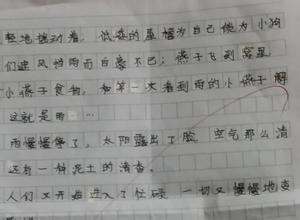 轻地摆动着，低落的屋檐为自己能为小狗
们避风挡雨而自豪不已；燕子飞到窝里，
小燕子食物，和第一次看到雨的小燕子解
这就是雨…
雨慢慢停了，太阳露出了脸。空气那么清
还有一种泥土的清香。
人们又开始进入了忙碌，一切又慢慢地变